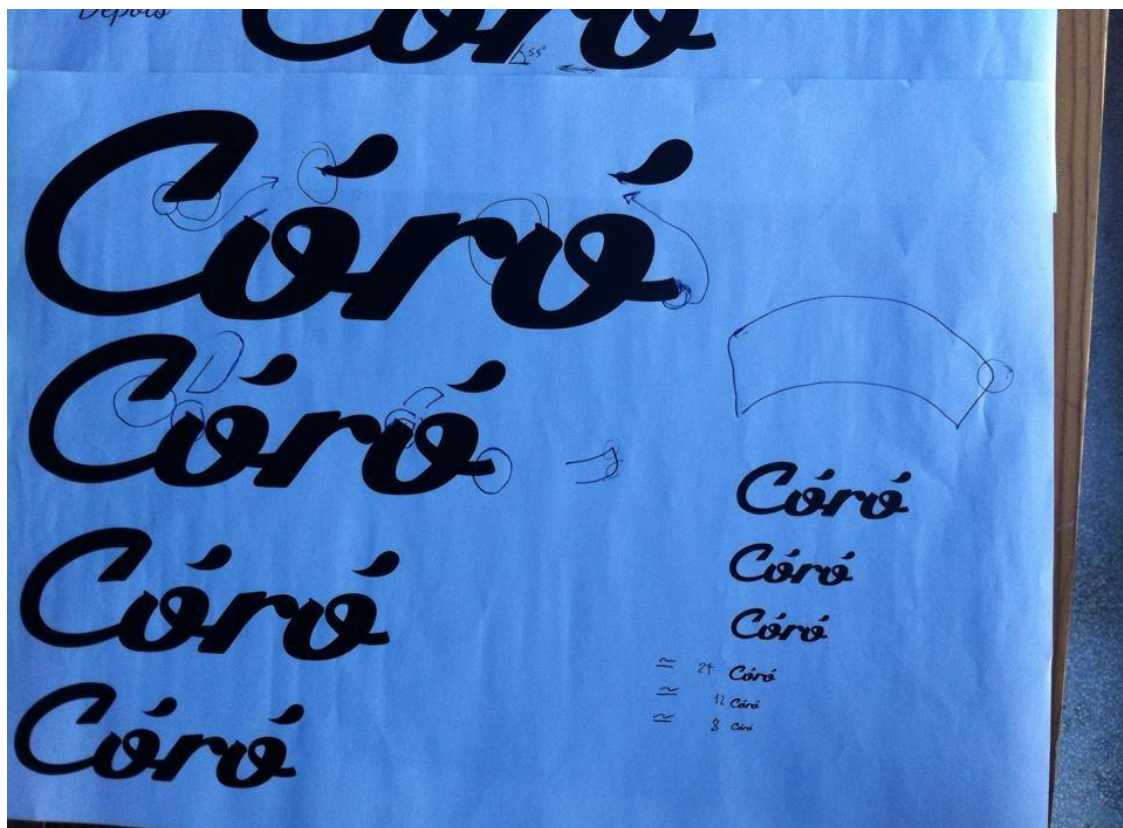 Depois
Córó
55°
Córó
Córó
Córó
Córó
Córó
Córó
Córó
≃ 24 Córó
≃ 12 Córó
≃ 8 Córó